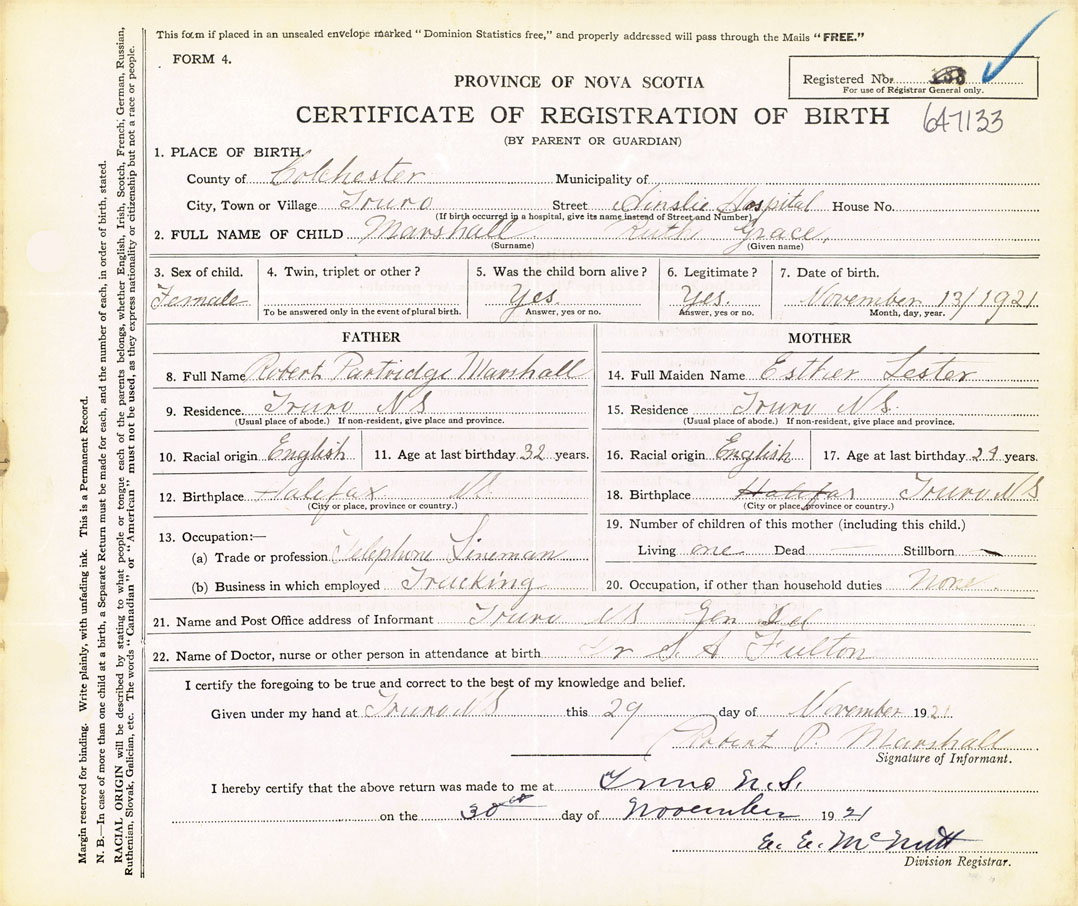 This form if placed in an unsealed envelope marked "Dominion Statistics free," and properly addressed will pass through the Mails "FREE."
FORM 4.
Registered No.
For use of Registrar General only.
PROVINCE OF NOVA SCOTIA
CERTIFICATE OF REGISTRATION OF BIRTH
647133
(BY PARENT OR GUARDIAN)
1. PLACE OF BIRTH.
County of Colchester Municipality of
City, Town or Village Truro Street Ainslie Hospital House No.
(If birth occurred in a hospital, give its name instead of Street and Number)
2. FULL NAME OF CHILD Marshall Ruth Grace,
(Surname) (Given name)
3. Sex of child. 4. Twin, triplet or other? 5. Was the child born alive? 6. Legitimate? 7. Date of birth.
Female Yes. Yes. November 13/1921
To be answered only in the event of plural birth. Answer, yes or no. Answer, yes or no. Month, day, year.
FATHER
8. Full Name Robert Partridge Marshall
9. Residence. Truro NS
(Usual place of abode.) If non-resident, give place and province.
10. Racial origin English 11. Age at last birthday 32 years.
12. Birthplace Halifax
(City or place, province or country.)
13. Occupation:—
(a) Trade or profession Telephone Lineman
(b) Business in which employed Trucking
MOTHER
14. Full Maiden Name Esther Lester
15. Residence Truro NS.
(Usual place of abode.) If non-resident, give place and province.
16. Racial origin English 17. Age at last birthday 29 years.
18. Birthplace Halifax Truro NS
(City or place, province or country.)
19. Number of children of this mother (including this child.)
Living one Dead — Stillborn —
20. Occupation, if other than household duties None
21. Name and Post Office address of Informant Truro NS Gen Del
22. Name of Doctor, nurse or other person in attendance at birth Dr S. A Fulton
I certify the foregoing to be true and correct to the best of my knowledge and belief.
Given under my hand at Truro NS this 29 day of November 1921.
Robert P. Marshall
Signature of Informant.
I hereby certify that the above return was made to me at Truro N.S.
on the 30th day of November 1921
E. E. McNutt
Division Registrar.
Margin reserved for binding. Write plainly, with unfading ink. This is a Permanent Record.
N. B.—In case of more than one child at a birth, a Separate Return must be made for each, and the number of each, in order of birth, stated.
RACIAL ORIGIN will be described by stating to what people or tongue each of the parents belongs, whether English, Irish, Scotch, French, German, Russian,
Ruthenian, Slovak, Galician, etc. The words "Canadian" or "American" must not be used, as they express nationality or citizenship but not a race or people.